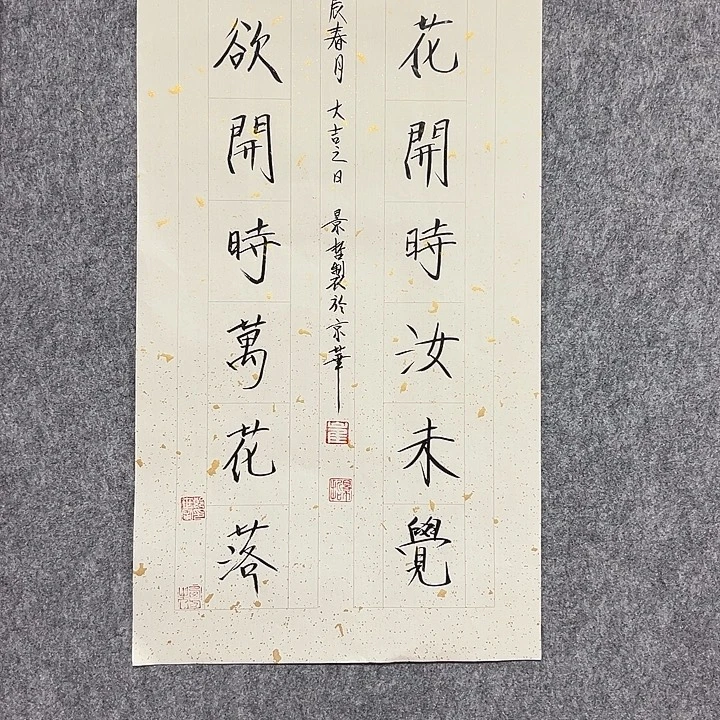 花開時汝未覺
辰春月 大吉之日 景哲製於京華
欲開時萬花落